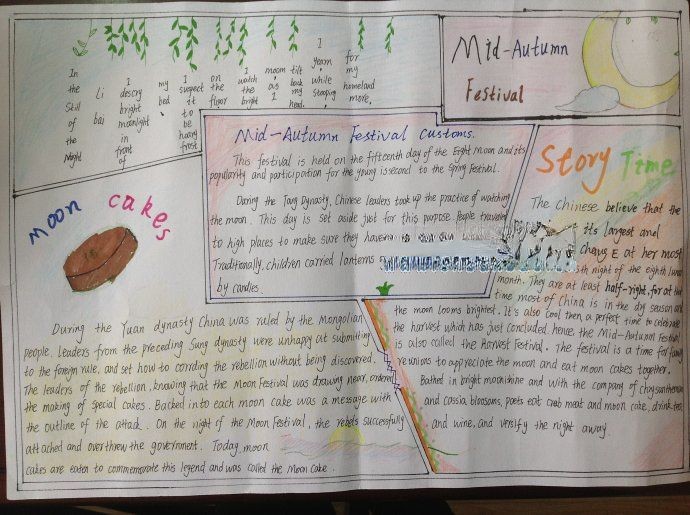 Mid-Autumn
Festival
In
the
still
of
the
night
Li
bai
I
descry
bright
moonlight
in
front
of
my
bed
I
suspect
it
to
be
hoary
frost
on
the
floor
I
watch
the
bright
moon
as
I
tilt
back
my
head.
I
yearn
while
stooping
for
my
homeland
more.
Mid-Autumn Festival Customs.
This festival is held on the fifteenth day of the Eight Moon and its
popularity and participation for the young is second to the Spring Festival.
During the Tang Dynasty, Chinese leaders took up the practice of watching
the moon. This day is set aside just for this purpose. People traveled
to high places to make sure they
Traditionally, children carried lanterns
by candles.
Story Time
The Chinese believe that the
its largest and
Chang E at her most
th night of the eighth lunar
month. They are at least half-right, for at that
time most of China is in the dry season and
the moon looms brightest. It's also cool then, a perfect time to celebrate
the harvest which has just concluded. hence the Mid-Autumn Festival
is also called the Harvest Festival. The festival is a time for family
reunions to appreciate the moon and eat moon cakes together.
Bathed in bright moonshine and with the company of chrysanthemum
and cassia blossoms, poets eat crab meat and moon cake, drink tea,
and wine, and versify the night away.
moon cakes
During the Yuan dynasty China was ruled by the Mongolian
people. Leaders from the preceding Sung dynasty were unhappy at submiting
to the foreign rule, and set how to corrding the rebellion without being discovered.
The leaders of the rebellion, knowing that the Moon Festival was drawing near, ordered
the making of special cakes. Backed into each moon cake was a message with
the outline of the attack. On the night of the Moon Festival, the rebels successfully
attached and overthrew the government. Today, moon
cakes are eaten to commemorate this legend and was called the Moon Cake.